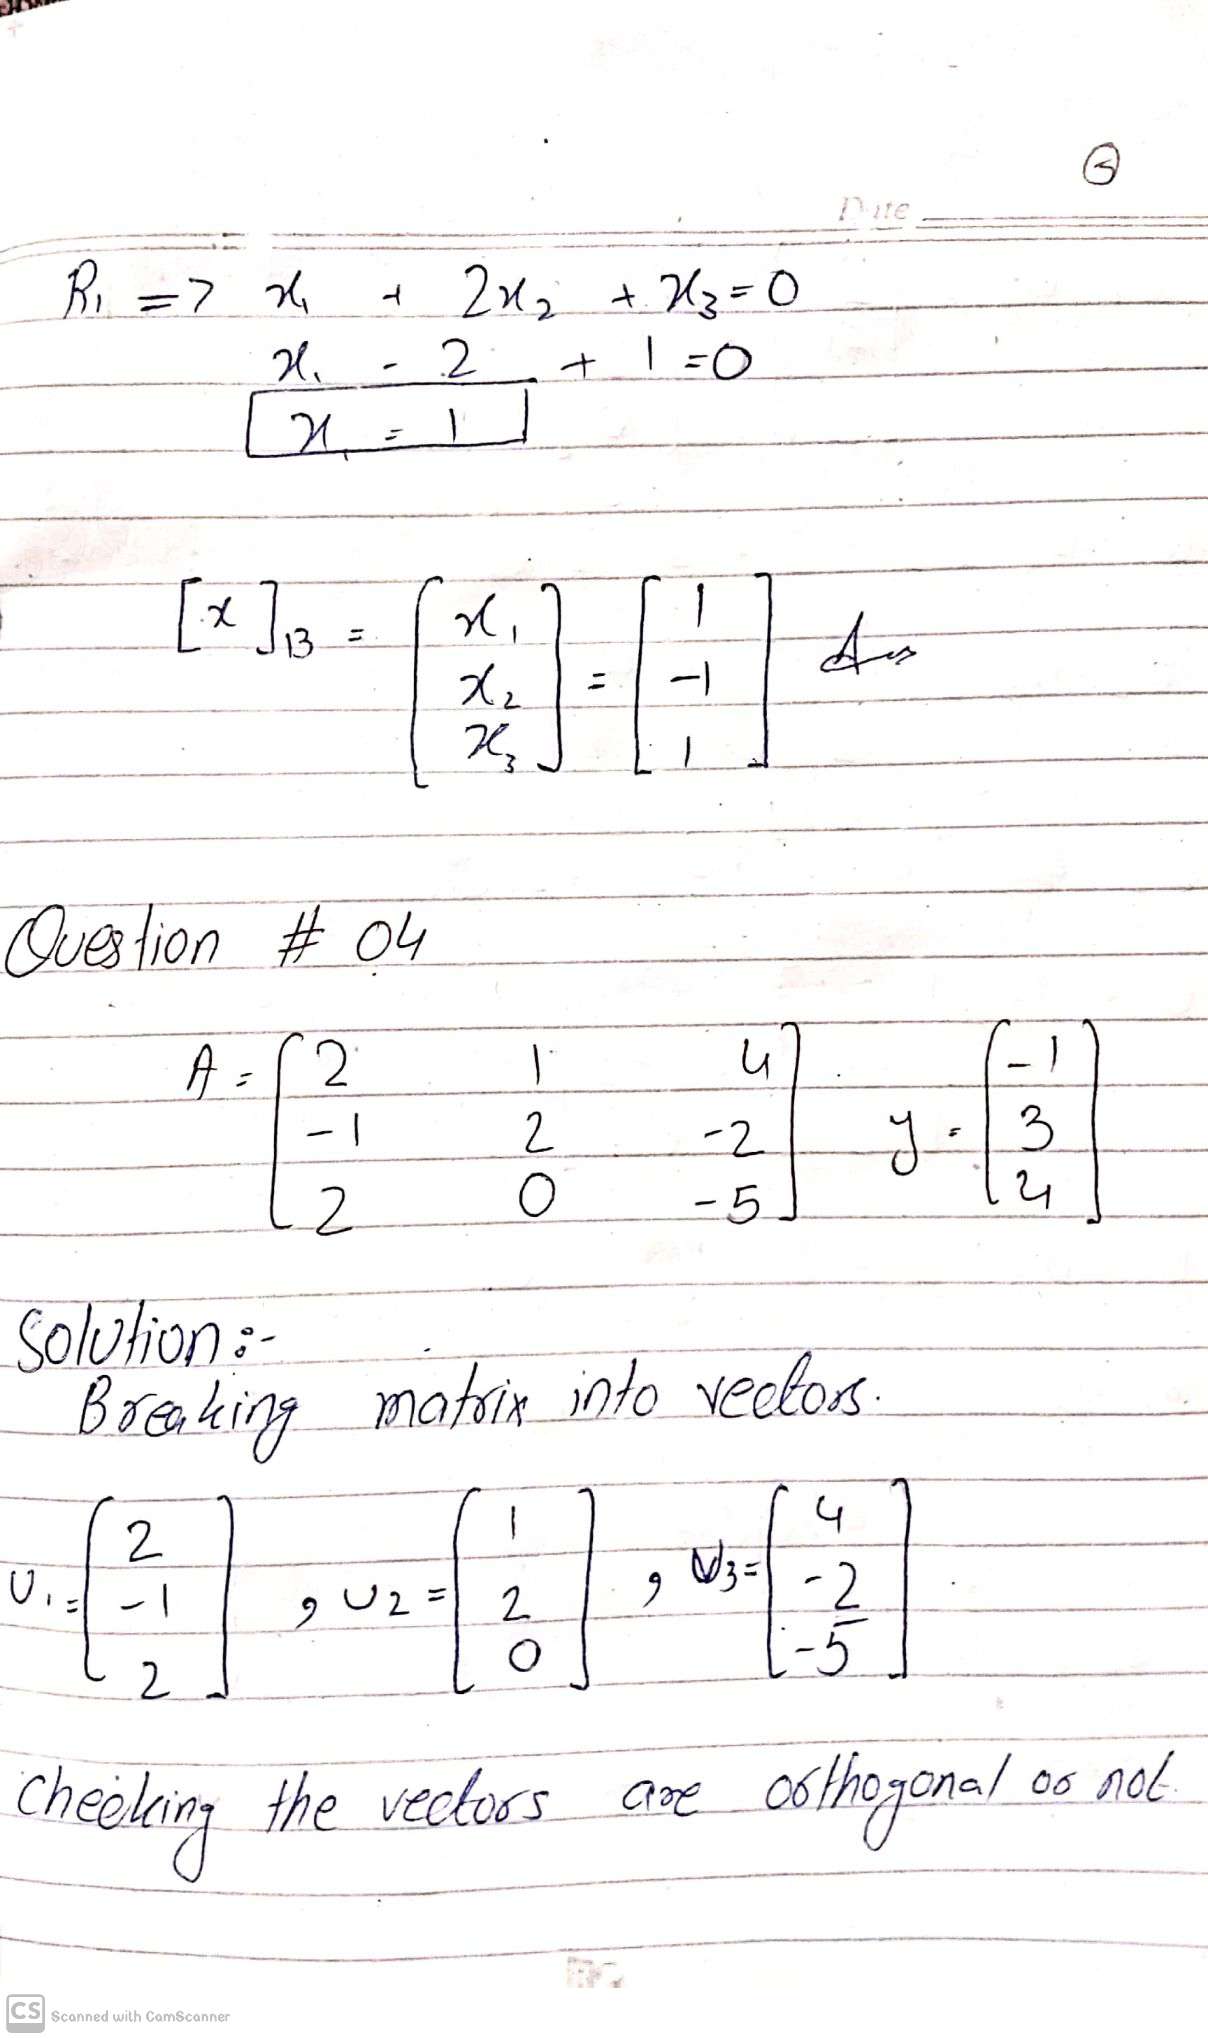 ③
Date
R₁ => x₁ + 2x₂ + x₃ = 0
x₁ - 2 + 1 = 0
x₁ = 1
[x]₁₃ = [x₁ x₂ x₃] = [1 -1 1] Ans
Question # 04
A = [2 1 4
-1 2 -2
2 0 -5] y = [-1 3 4]
Solution:-
Breaking matrix into vectors.
U₁ = [2 -1 2] , U₂ = [1 2 0] , U₃ = [4 -2 -5]
checking the vectors are orthogonal or not.
CS Scanned with CamScanner